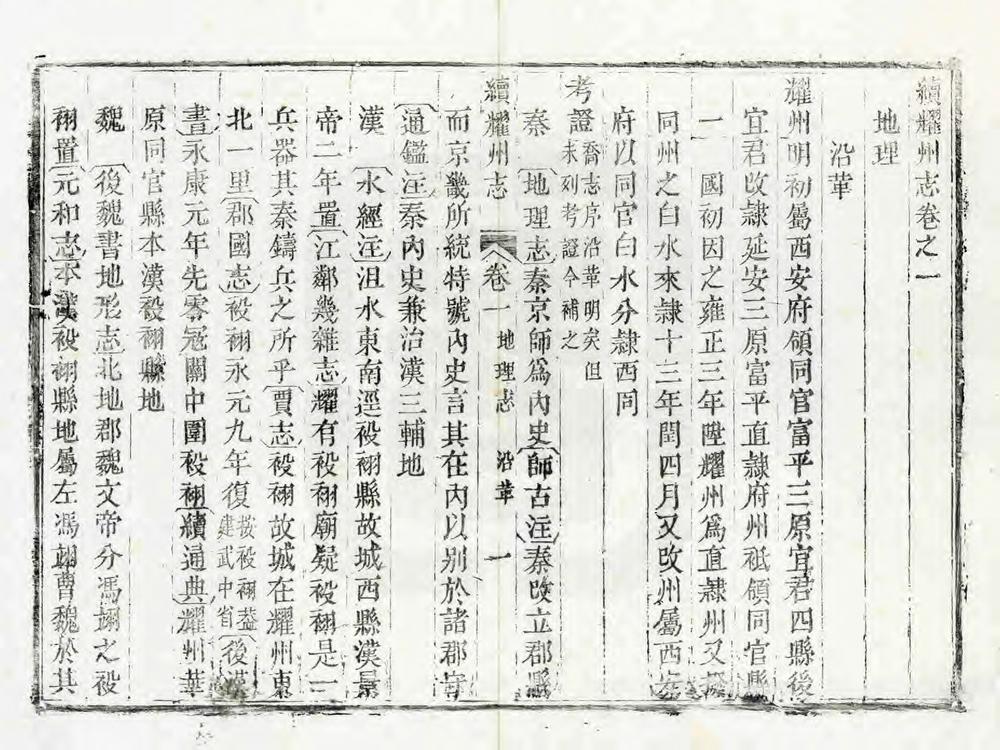 續耀州志卷之一
地理
沿革
耀州明初屬西安府領同官富平三原宜君四縣後
宜君改隸延安三原富平直隸府州祗領同官縣
一 國初因之雍正三年陞耀州為直隸州又撥
同州之白水來隸十三年閏四月又改州屬西安
府以同官白水分隸西同
考證喬志序沿革明矣但
未列考證今補之
秦 地理志秦京師為內史師古注秦改立郡縣
而京畿所統特號內史言其在內以別於諸郡守
續耀州志 卷一 地理志 沿革 一
通鑑注秦內史兼治漢三輔地
漢 水經注沮水東南逕祋祤縣故城西縣漢景
帝二年置江鄰幾雜志耀有祋祤廟疑祋祤是一
兵器其秦鑄兵之所乎賈志祋祤故城在耀州東
北一里郡國志祋祤永元九年復按祋祤葢
建武中省後漢
書永康元年先零寇關中圍祋祤續通典耀州華
原同官縣本漢祋祤縣地
魏 後魏書地形志北地郡魏文帝分馮翊之祋
祤置元和志本漢祋祤縣地屬左馮翊曹魏於其